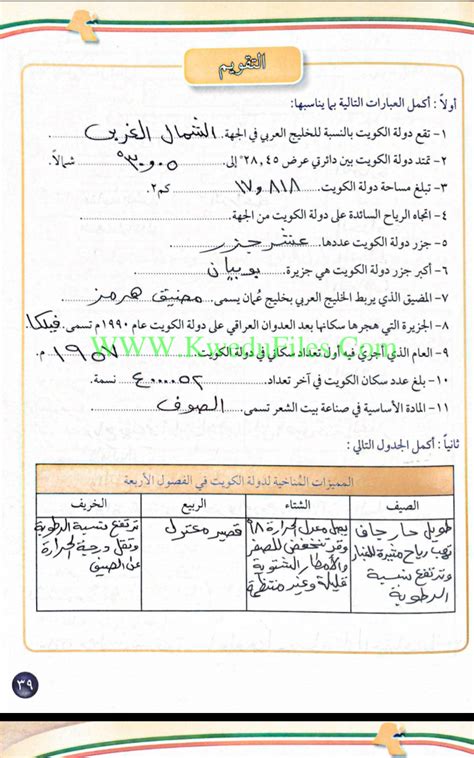 التقويم
أولاً : أكمل العبارات التالية بما يناسبها:
١- تقع دولة الكويت بالنسبة للخليج العربي في الجهة. الشمال الغربي
٢- تمتد دولة الكويت بين دائرتي عرض ٢٨,٤٥° إلى..... ٣٠و٠٥° شمالاً.
٣- تبلغ مساحة دولة الكويت..... ١٧و٨١٨ كم٢.
٤- اتجاه الرياح السائدة على دولة الكويت من الجهة.
٥- جزر دولة الكويت عددها. عشر جزر
٦- أكبر جزر دولة الكويت هي جزيرة. بوبيان
٧- المضيق الذي يربط الخليج العربي بخليج عُمان يسمى. مضيق هرمز
٨- الجزيرة التي هجرها سكانها بعد العدوان العراقي على دولة الكويت عام ١٩٩٠م تسمى. فيلكا.
٩- العام الذي أجري فيه أول تعداد سكاني في دولة الكويت ١٩٥٧ م.
WWW.KweduFiles.Com
١٠- بلغ عدد سكان الكويت في آخر تعداد. نسمة.
١١- المادة الأساسية في صناعة بيت الشعر تسمى. الصوف
ثانياً : أكمل الجدول التالي :
المميزات المناخية لدولة الكويت في الفصول الأربعة
الصيف الشتاء الربيع الخريف
طويل حار جاف يصل معدل الحرارة ٩٨ قصير معتدل ترتفع نسبة الرطوبة
تهب رياح مثيرة للغبار وقد تنخفض للصفر وتقل درجة الحرارة
وترتفع نسبة والأمطار الشتوية عن الصيف
الرطوبة قليلة وغير منتظمة
٣٩